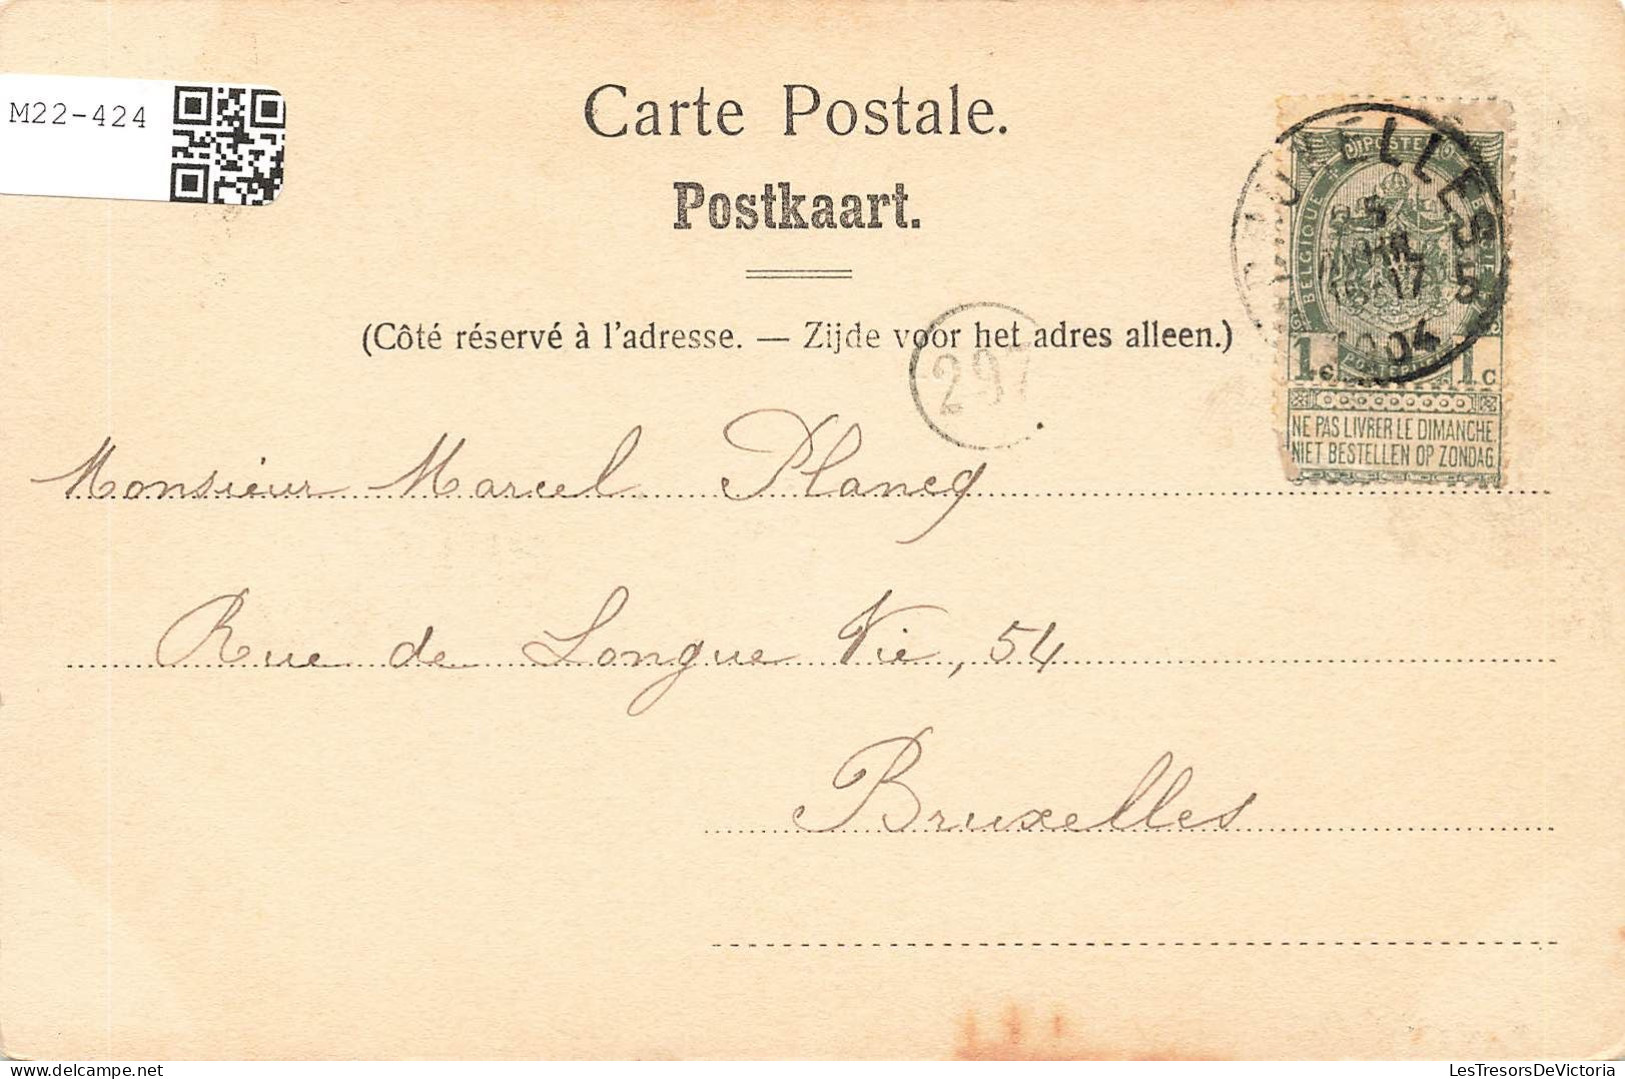 M22-424
Carte Postale.
Postkaart.
(Côté réservé à l'adresse. — Zijde voor het adres alleen.)
297
BRUXELLES 5
1904
POSTES
BELGIQUE
1 c 1 c
NE PAS LIVRER LE DIMANCHE.
NIET BESTELLEN OP ZONDAG.
Monsieur Marcel Plancq
Rue de Longue Vie, 54
Bruxelles
LesTresorsDeVictoria